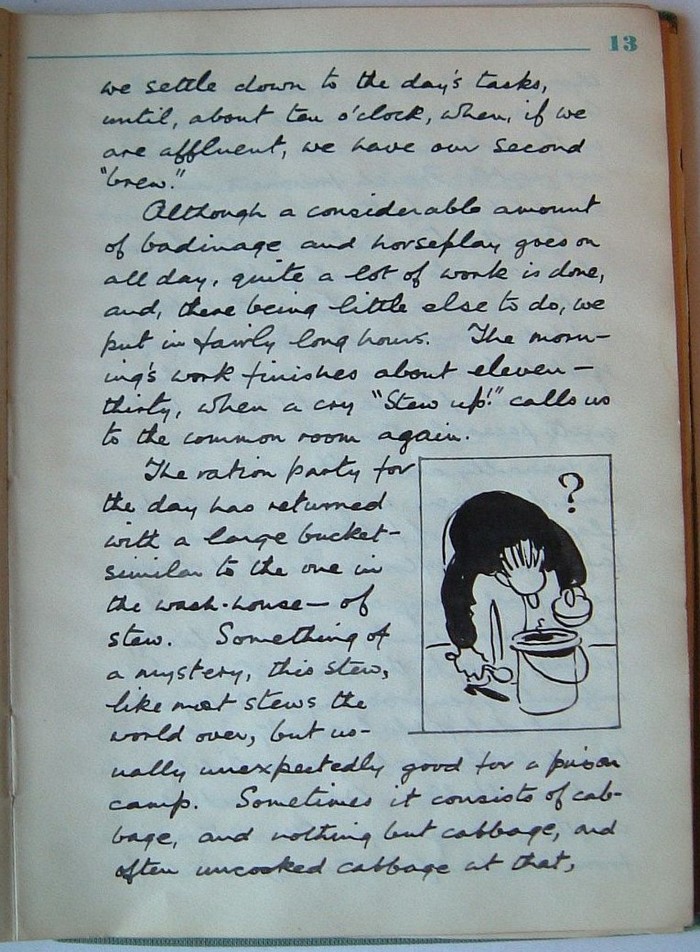 13
we settle down to the day's tasks,
until, about ten o'clock, when, if we
are affluent, we have our second
"brew."
Although a considerable amount
of badinage and horseplay goes on
all day, quite a lot of work is done,
and, there being little else to do, we
put in fairly long hours. The morn-
ing's work finishes about eleven-
thirty, when a cry "Stew up!" calls us
to the common room again.
The ration party for
the day has returned
with a large bucket-
similar to the one in
the wash-house- of
stew. Something of
a mystery, this stew,
like most stews the
world over, but us-
ually unexpectedly good for a prison
camp. Sometimes it consists of cab-
bage, and nothing but cabbage, and
often uncooked cabbage at that,
?